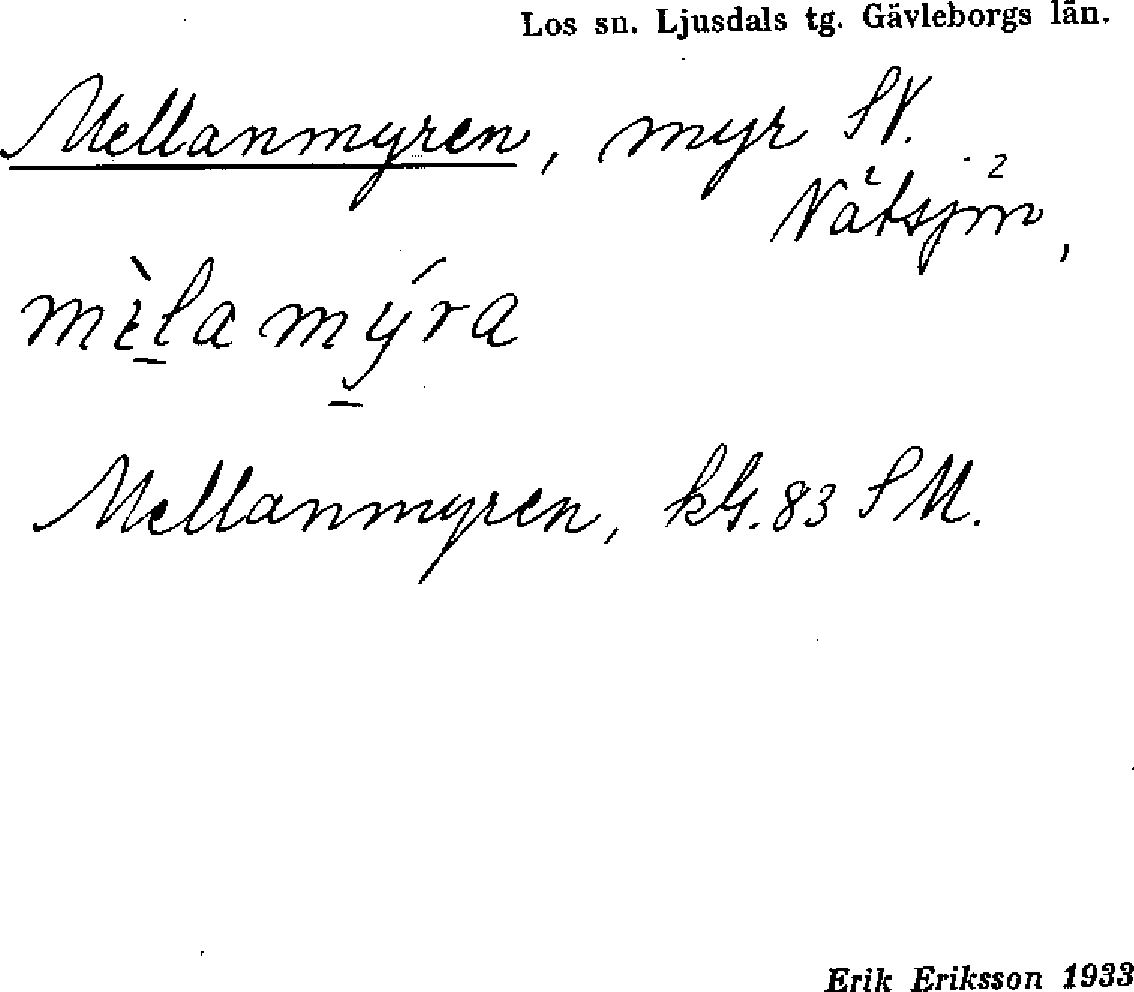 Los sn. Ljusdals tg. Gävleborgs län.
Mellanmyren, myr SV.
Nätsjön,
mèlamýra
Mellanmyren, kG. 83 SM.
Erik Eriksson 1933